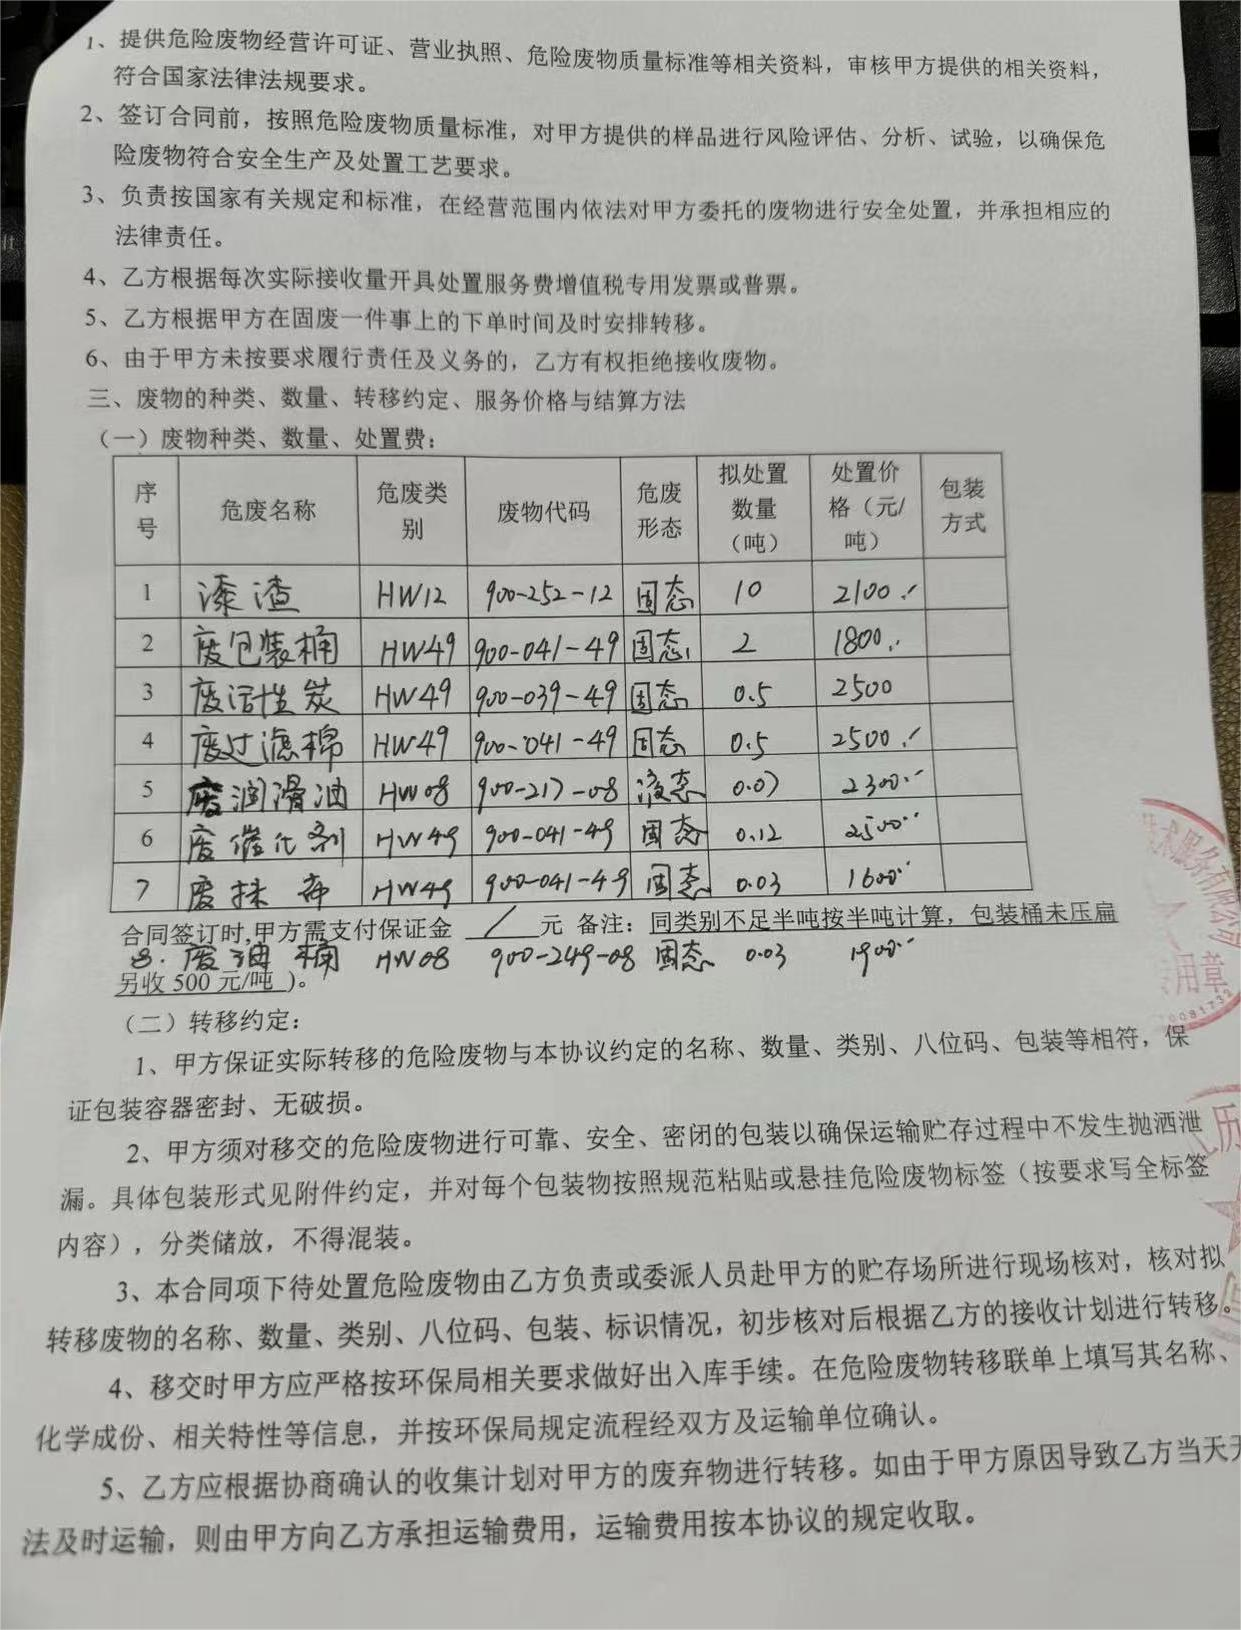 1、提供危险废物经营许可证、营业执照、危险废物质量标准等相关资料，审核甲方提供的相关资料，
符合国家法律法规要求。
2、签订合同前，按照危险废物质量标准，对甲方提供的样品进行风险评估、分析、试验，以确保危
险废物符合安全生产及处置工艺要求。
3、负责按国家有关规定和标准，在经营范围内依法对甲方委托的废物进行安全处置，并承担相应的
法律责任。
4、乙方根据每次实际接收量开具处置服务费增值税专用发票或普票。
5、乙方根据甲方在固废一件事上的下单时间及时安排转移。
6、由于甲方未按要求履行责任及义务的，乙方有权拒绝接收废物。
三、废物的种类、数量、转移约定、服务价格与结算方法
（一）废物种类、数量、处置费：
序号 危废名称 危废类别 废物代码 危废形态 拟处置数量（吨） 处置价格（元/吨） 包装方式
1 漆渣 HW12 900-252-12 固态 10 2100
2 废包装桶 HW49 900-041-49 固态 2 1800
3 废活性炭 HW49 900-039-49 固态 0.5 2500
4 废过滤棉 HW49 900-041-49 固态 0.5 2500
5 废润滑油 HW08 900-217-08 液态 0.07 2300
6 废催化剂 HW49 900-041-49 固态 0.12 2500
7 废抹布 HW49 900-041-49 固态 0.03 1600
合同签订时,甲方需支付保证金 / 元 备注：同类别不足半吨按半吨计算，包装桶未压扁
8. 废油桶 HW08 900-249-08 固态 0.03 1900
另收 500 元/吨 )。
（二）转移约定：
1、甲方保证实际转移的危险废物与本协议约定的名称、数量、类别、八位码、包装等相符，保
证包装容器密封、无破损。
2、甲方须对移交的危险废物进行可靠、安全、密闭的包装以确保运输贮存过程中不发生抛洒泄
漏。具体包装形式见附件约定，并对每个包装物按照规范粘贴或悬挂危险废物标签（按要求写全标签
内容），分类储放，不得混装。
3、本合同项下待处置危险废物由乙方负责或委派人员赴甲方的贮存场所进行现场核对，核对拟
转移废物的名称、数量、类别、八位码、包装、标识情况，初步核对后根据乙方的接收计划进行转移。
4、移交时甲方应严格按环保局相关要求做好出入库手续。在危险废物转移联单上填写其名称、
化学成份、相关特性等信息，并按环保局规定流程经双方及运输单位确认。
5、乙方应根据协商确认的收集计划对甲方的废弃物进行转移。如由于甲方原因导致乙方当天无
法及时运输，则由甲方向乙方承担运输费用，运输费用按本协议的规定收取。
术服务有限公司
用章
历